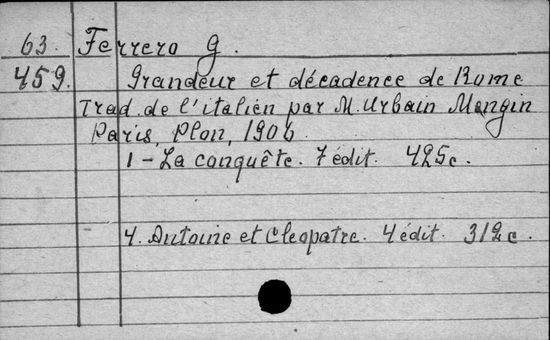 63. Ferrero G.
459. Grandeur et décadence de Rome
Trad. de l'italien par M. Urbain Mengin
Paris, Plon, 1906
1 - La conquête. 7 édit. 425c.
4. Antoine et Cleopatre. 4 édit. 312c.